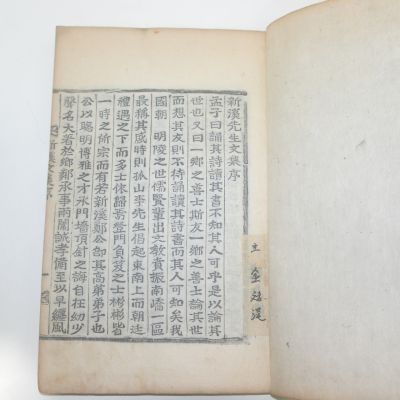 新溪先生文集序
孟子曰誦其詩讀其書不知其人可乎是以論其
世也又曰一鄉之善士斯友一鄉之善士論其世
而想其友則不待誦讀其詩書而其人可知矣我
國朝 明陵之世儒賢輩出文敎賁振南嶠一區
最稱其盛時則孤山李先生倡起東南上而朝廷
禮遇之下而多士依歸焉登門負笈之士彬彬皆
一時之所宗而有若新溪鄭公其高弟弟子也
公以聰明博雅之才承門墻頂針之誨自在幼少
聲名大著於鄉鄰承事兩闈誠孝備至以早纏風
新溪文集序
一
主 金